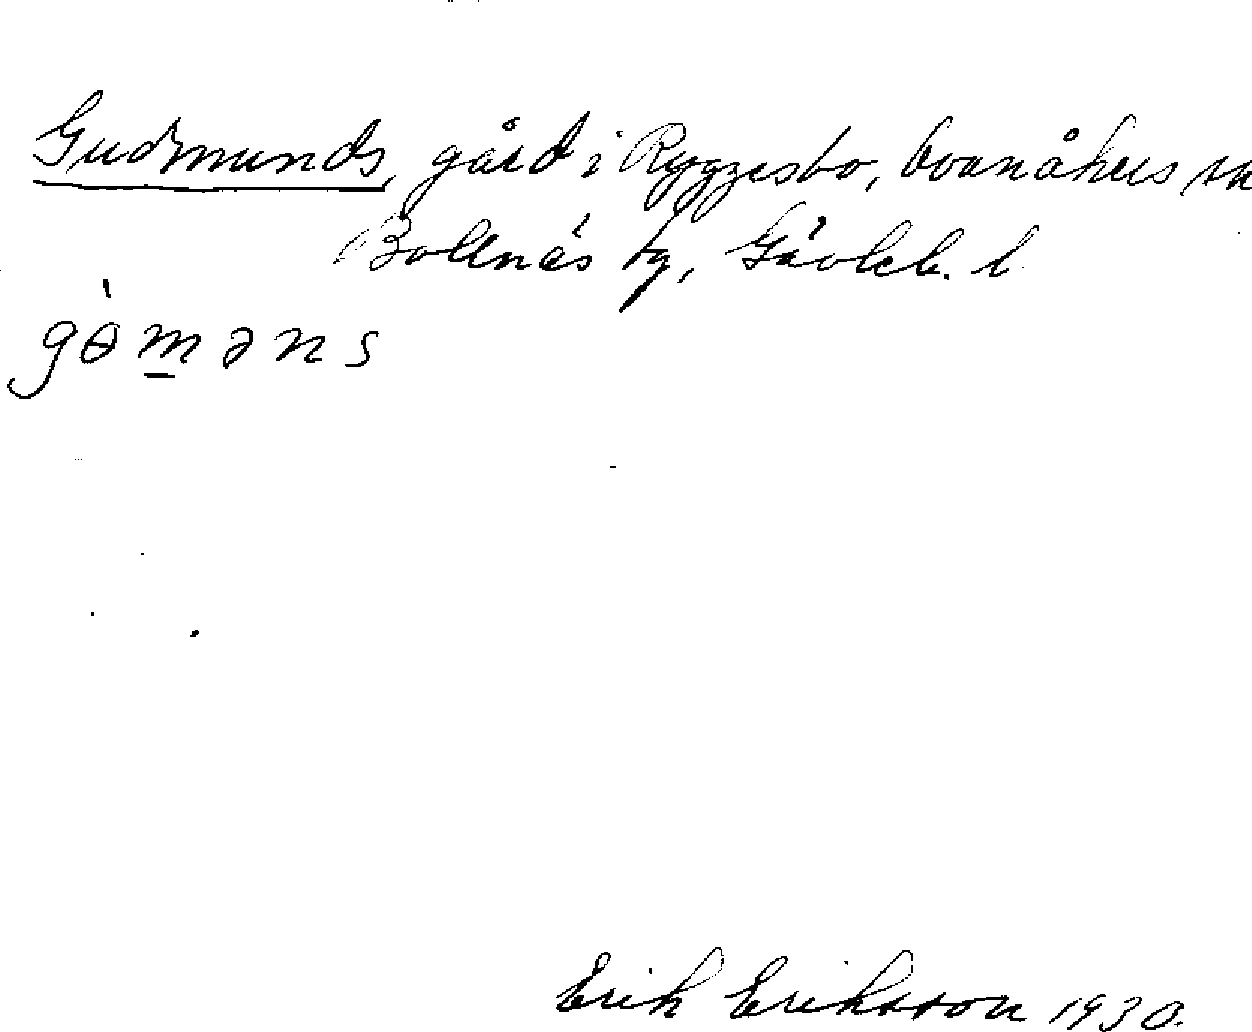 Gudmunds, gård i Ryggesbo, Ovanåkers sn
Bollnäs tg, Gävleb. l.
gɵ̀m̲əns
Erik Eriksson 1930.